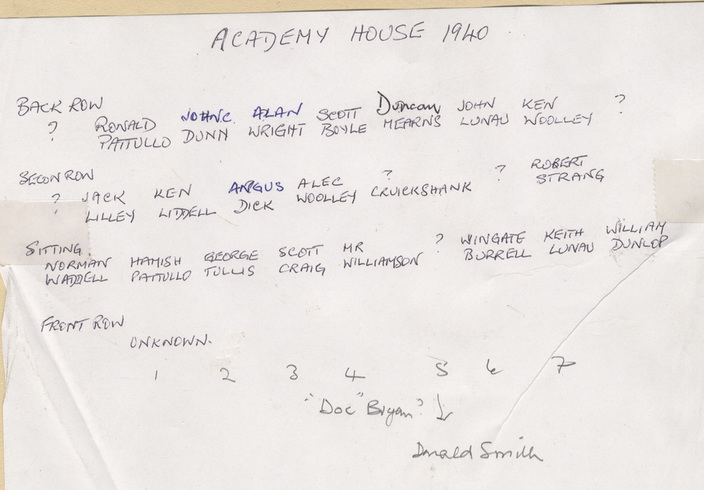 ACADEMY HOUSE 1940
BACK ROW
? RONALD JOHN C. ALAN SCOTT Duncan JOHN KEN ?
PATTULLO DUNN WRIGHT BOYLE MEARNS LUNAU WOOLLEY
SECON ROW
? JACK KEN ANGUS ALEC ? ? ROBERT
LILLEY LIDDELL DICK WOOLLEY CRUICKSHANK STRANG
SITTING.
NORMAN HAMISH GEORGE SCOTT MR ? WINGATE KEITH WILLIAM
WADDELL PATTULLO TULLIS CRAIG WILLIAMSON BURRELL LUNAU DUNLOP
FRONT ROW
UNKNOWN.
1 2 3 4 5 6 7
"Doc" Bryan? ↓
Donald Smith